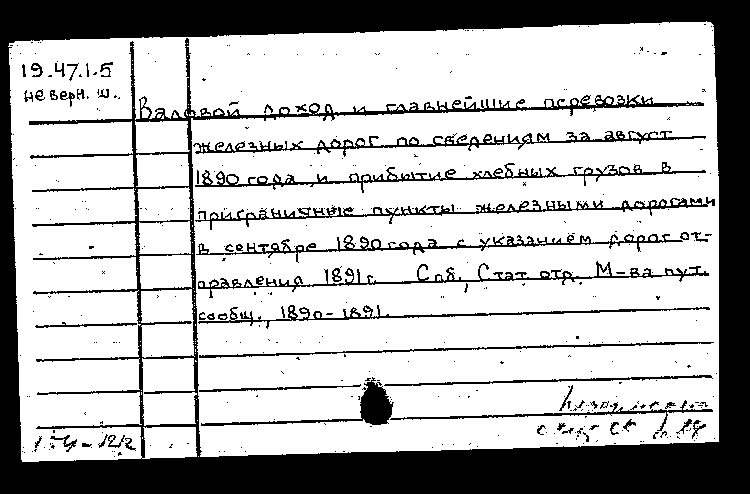 19.47.1.5
неверн. ш.
Валовой доход и главнейшие перевозки
железных дорог по сведениям за август
1890 года и прибытие хлебных грузов в
приграничные пункты железными дорогами
в сентябре 1890 года с указанием дорог от-
правления 1891 г. Спб., Стат. отд. М-ва пут.
сообщ., 1890-1891.